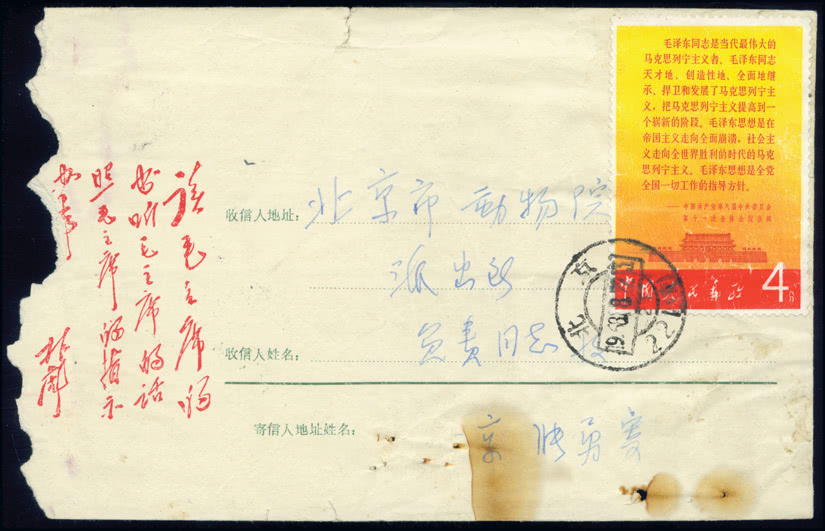 读毛主席的
书听毛主席的话
照毛主席的指示
办事
林彪
毛泽东同志是当代最伟大的
马克思列宁主义者。毛泽东同志
天才地、创造性地、全面地继
承、捍卫和发展了马克思列宁主
义，把马克思列宁主义提高到一
个崭新的阶段。毛泽东思想是在
帝国主义走向全面崩溃，社会主
义走向全世界胜利的时代的马克
思列宁主义。毛泽东思想是全党
全国一切工作的指导方针。
——中国共产党第八届中央委员会
第十一次全体会议公报
中国人民邮政
4分
收信人地址：北京市動物院
派出所
收信人姓名：负责同志 收
寄信人地址姓名：京 张勇寄
北 京